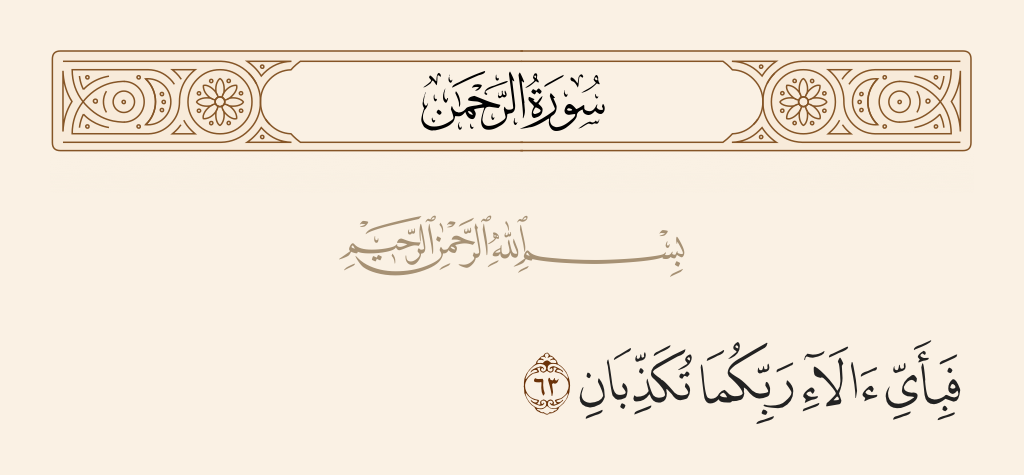 سُورَةُ الرَّحْمَٰن
بِسْمِ ٱللَّهِ ٱلرَّحْمَٰنِ ٱلرَّحِيمِ
فَبِأَىِّ ءَالَآءِ رَبِّكُمَا تُكَذِّبَانِ ٦٣